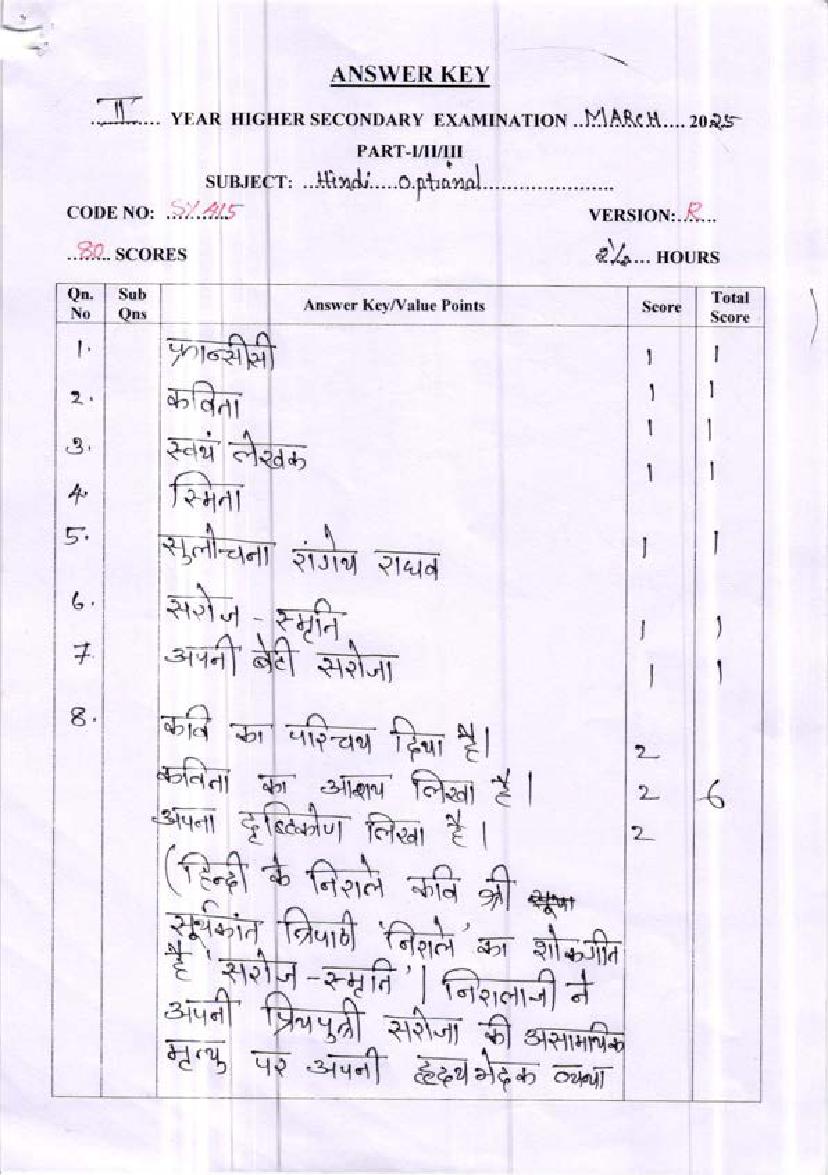 ANSWER KEY
II YEAR HIGHER SECONDARY EXAMINATION MARCH 2025
PART-I/II/III
SUBJECT: Hindi Optional
CODE NO: SY 415 VERSION: R
80 SCORES 2½ HOURS
Qn. No Sub Qns Answer Key/Value Points Score Total Score
1. फ्रान्सीसी 1 1
2. कविता 1 1
3. स्वयं लेखक 1 1
4. स्मिता 1 1
5. सुलोचना रांगेय राघव 1 1
6. सरोज - स्मृति 1 1
7. अपनी बेटी सरोजा 1 1
8. कवि का परिचय दिया है। 2
कविता का आशय लिखा है। 2 6
अपना दृष्टिकोण लिखा है। 2
(हिन्दी के निराले कवि श्री
सूर्यकांत त्रिपाठी 'निराले' का शोकगीत
है 'सरोज-स्मृति'। निरालाजी ने
अपनी प्रियपुत्री सरोजा की असामयिक
मृत्यु पर अपनी हृदयभेदक व्यथा